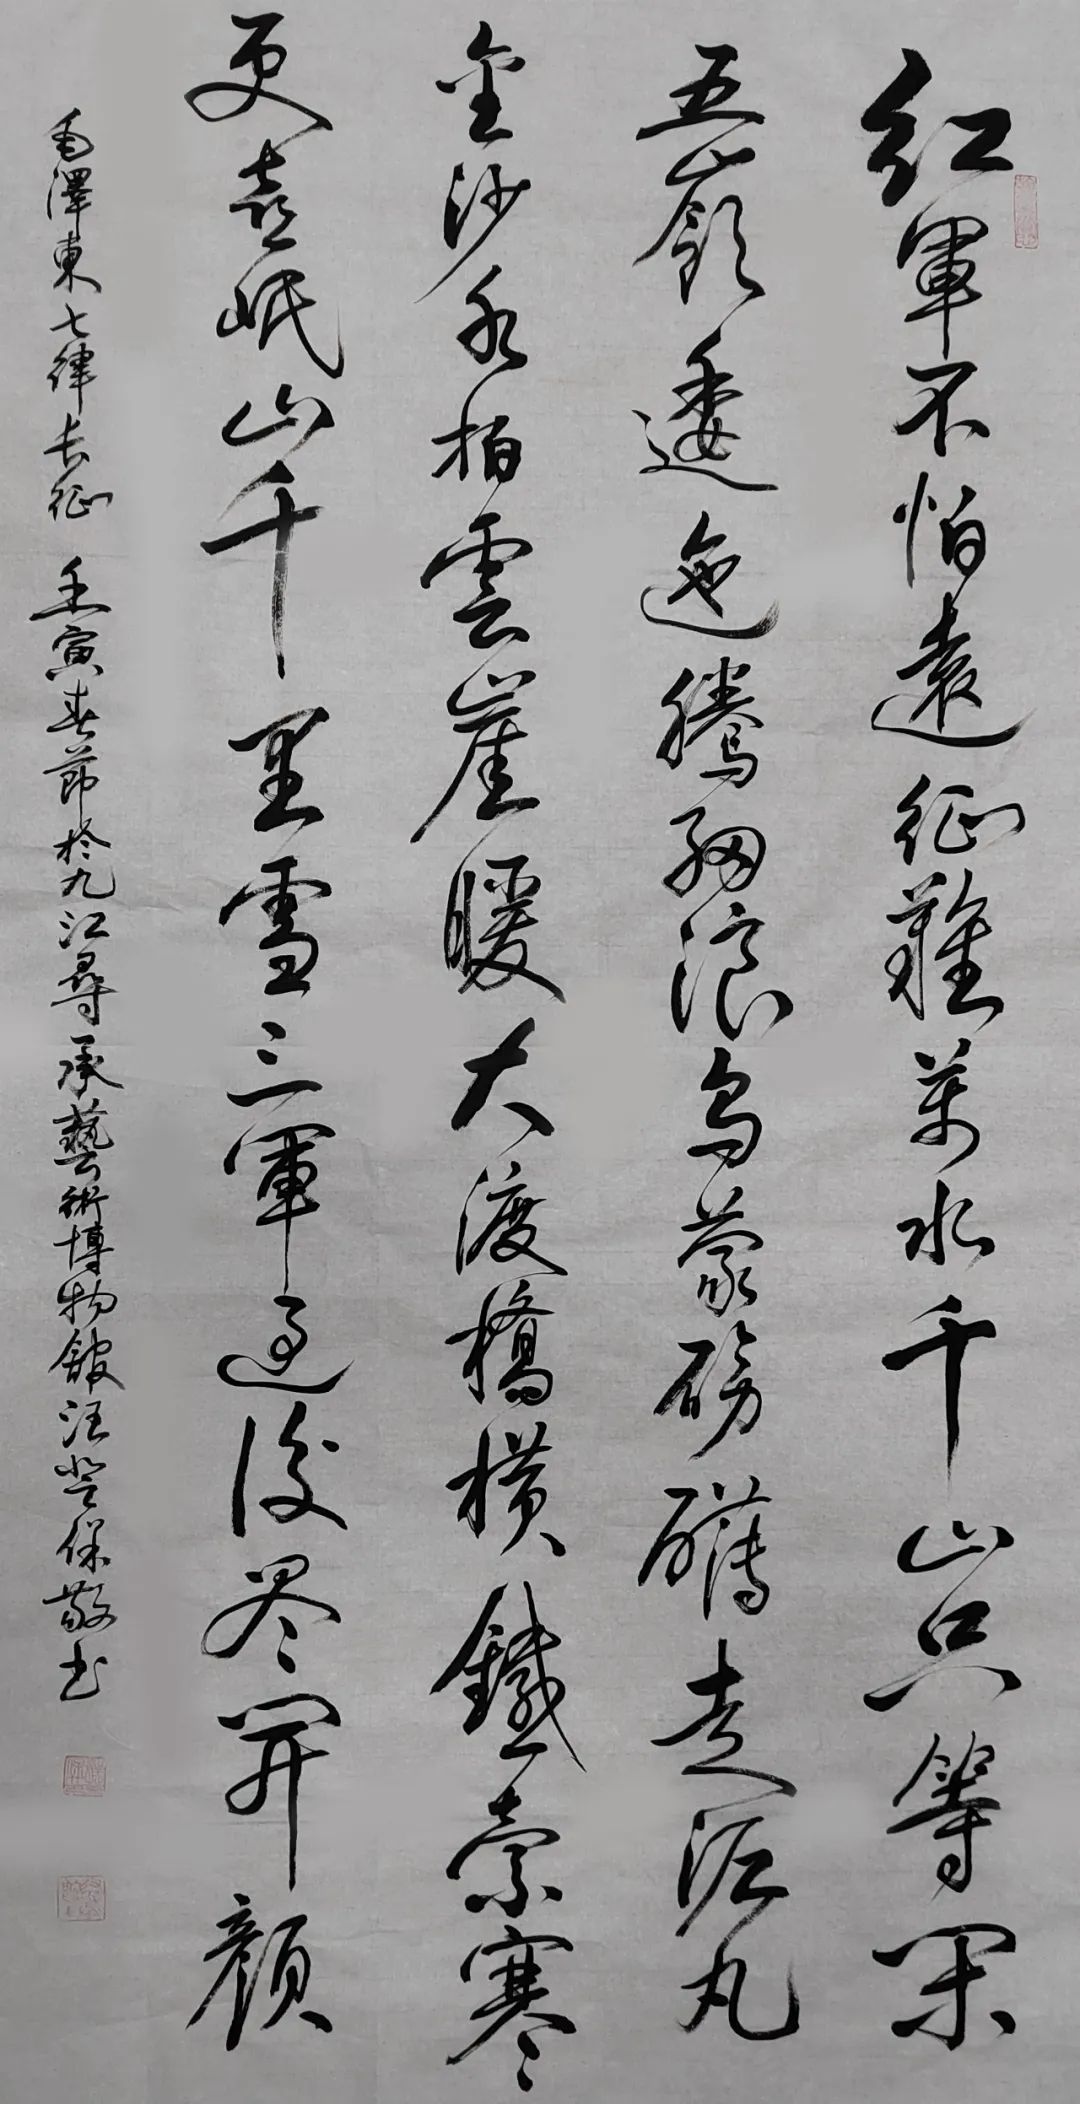 紅軍不怕遠征難萬水千山只等閑
五嶺逶迤騰細浪烏蒙磅礴走泥丸
金沙水拍雲崖暖大渡橋橫鐵索寒
更喜岷山千里雪三軍過後尽開顏
毛澤東七律長征 壬寅春節於九江尋承藝術博物館汪登保敬書